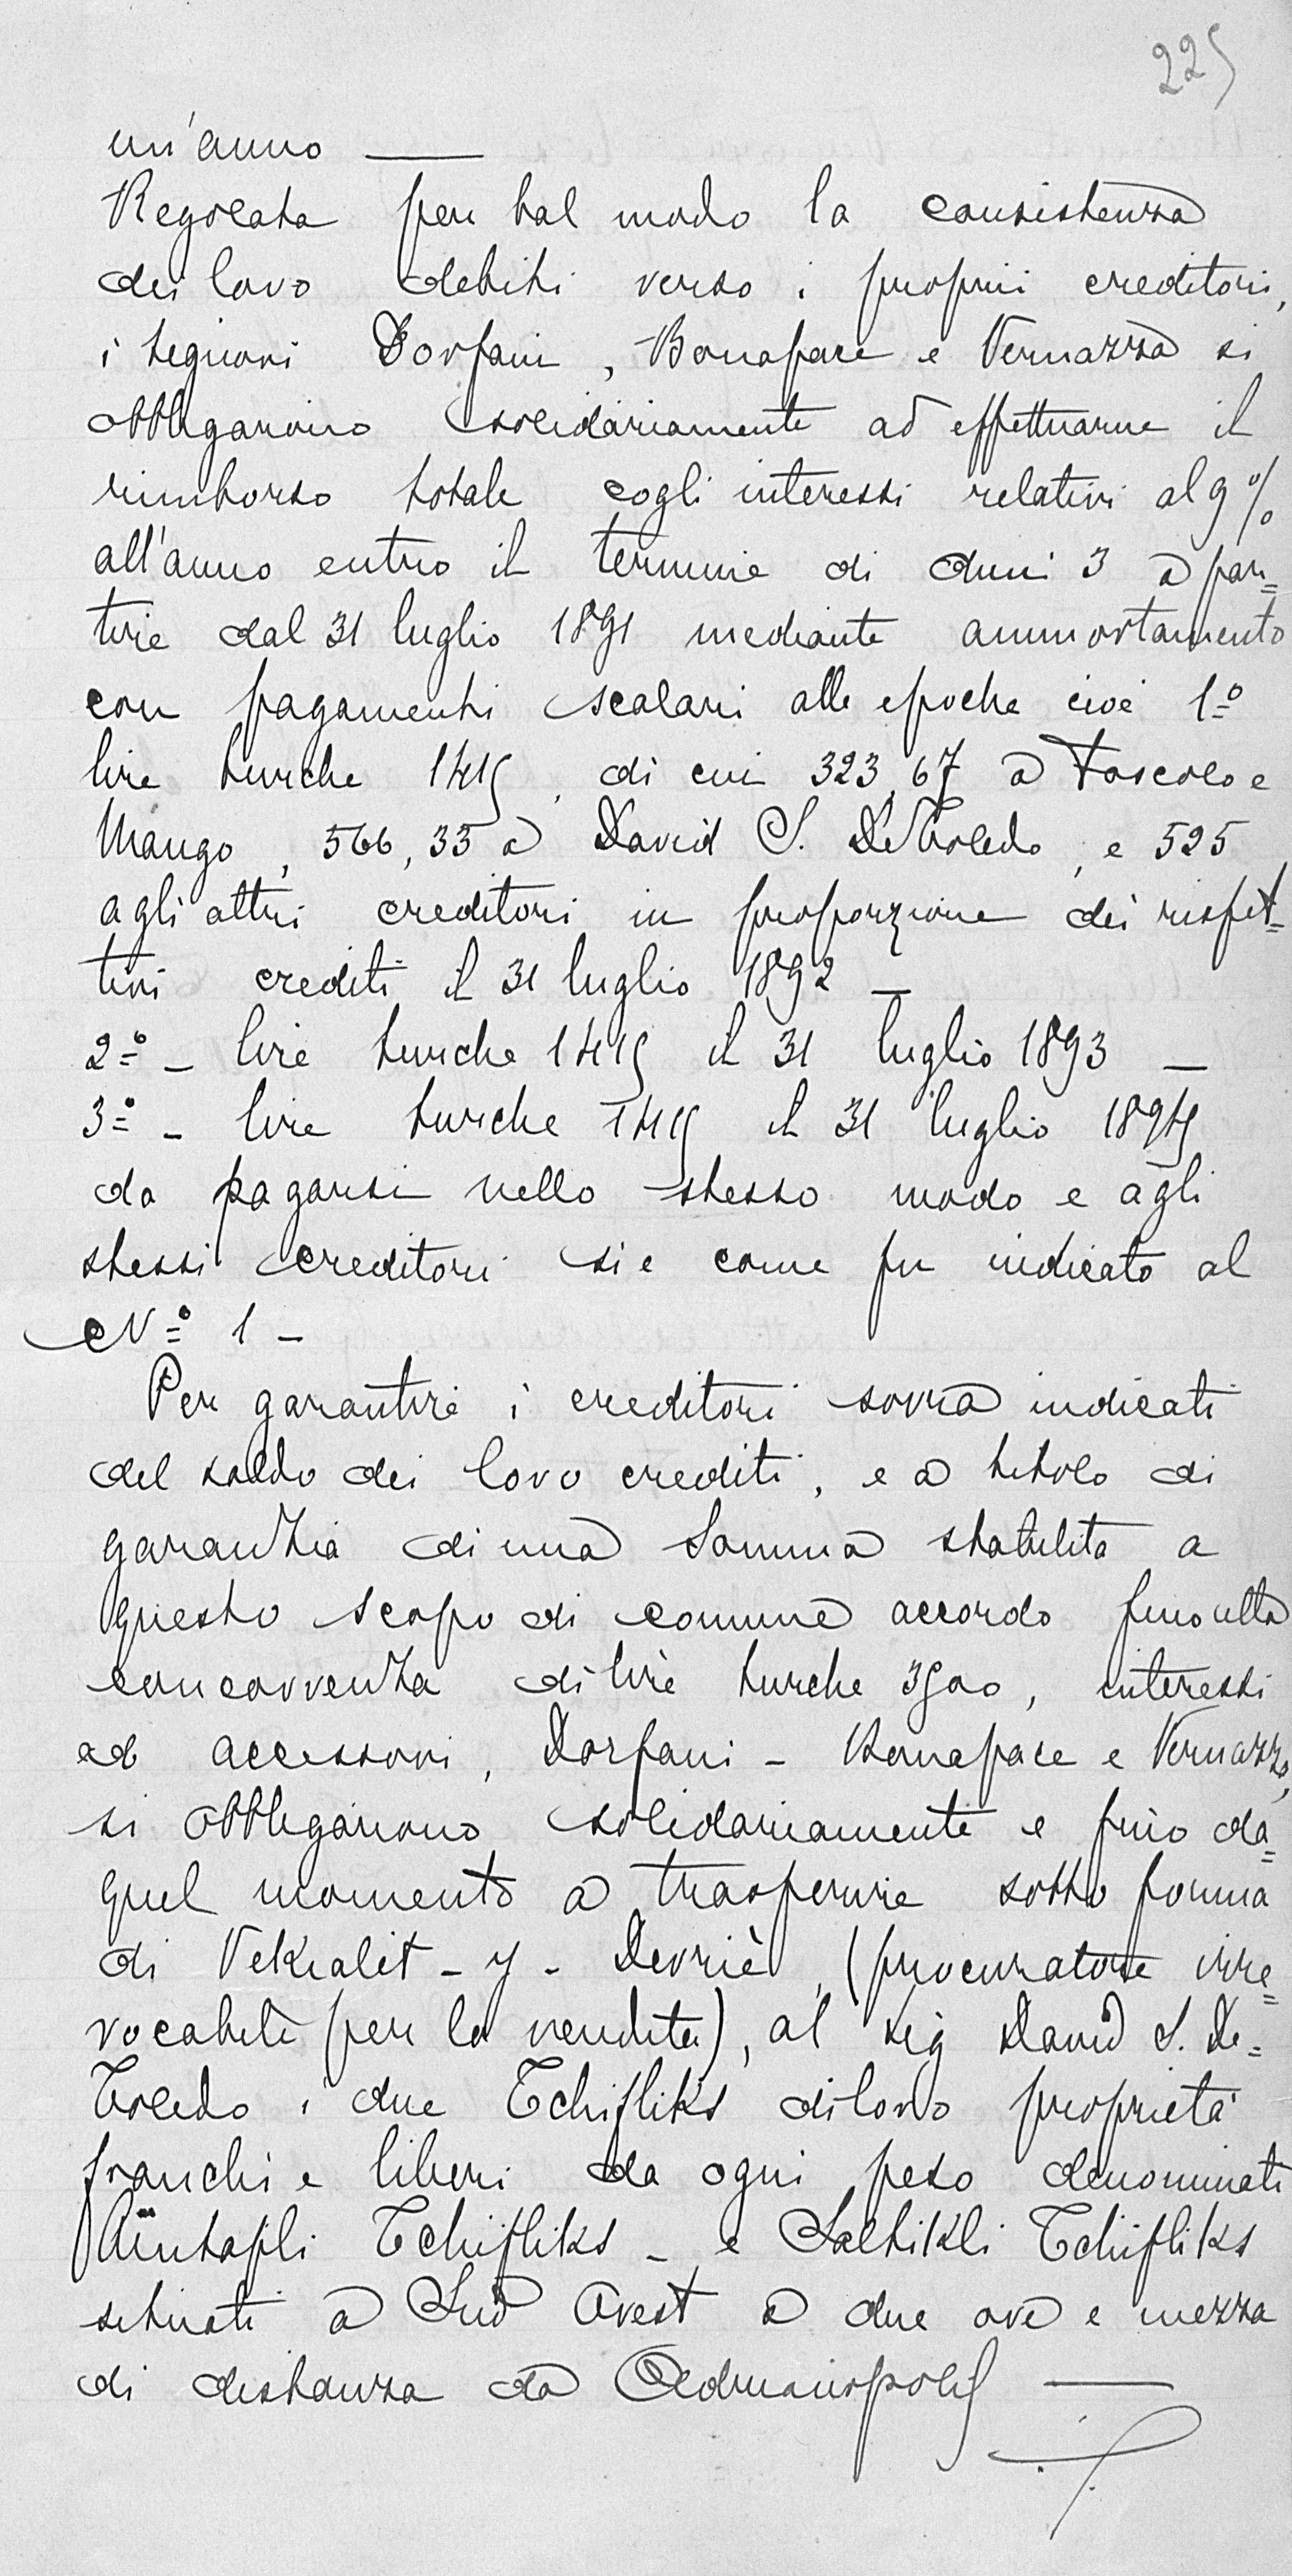 225
un'anno —
Regolata per tal modo la consistenza
dei loro debiti verso i proprii creditori,
i signori Dorfani, Bonapace e Vernazza si
obbligarono solidariamente ad effettuarne il
rimborso totale cogli interessi relativi al 9%
all'anno entro il termine di anni 3 a par=
tire dal 31 luglio 1891 mediante ammortamento
con pagamenti scalari alle epoche cioè 1º
lire turche 1415, di cui 323,67 a Foscolo e
Mango, 566,33 a David S. DeToledo, e 525
agli altri creditori in proporzione dei rispet=
tivi crediti il 31 luglio 1892 —
2º - lire turche 1415 il 31 luglio 1893 —
3º - lire turche 1415 il 31 luglio 1894
da pagarsi nello stesso modo e agli
stessi creditori si e come fu indicato al
Nº 1 -
Per garantire i creditori sovra indicati
del saldo dei loro crediti, e a titolo di
garanzia di una somma stabilita a
questo scopo di comune accordo fino alla
concorrenza di lire turche 3500, interessi
ed accessori, Dorfani - Bonapace e Vernazza,
si obbligarono solidariamente e fino da=
quel momento a trasferire sotto forma
di Vekialet - y - Devriè, (procuratore irre=
vocabile per la vendita), al sig David S. De=
Toledo i due Tchifliks di loro proprietà
franchi e liberi da ogni peso denominati
Aïntapli Tchifliks - e Saltikli Tchifliks
situati a Sud Ovest a due ore e mezza
di distanza da Adrianopoli —